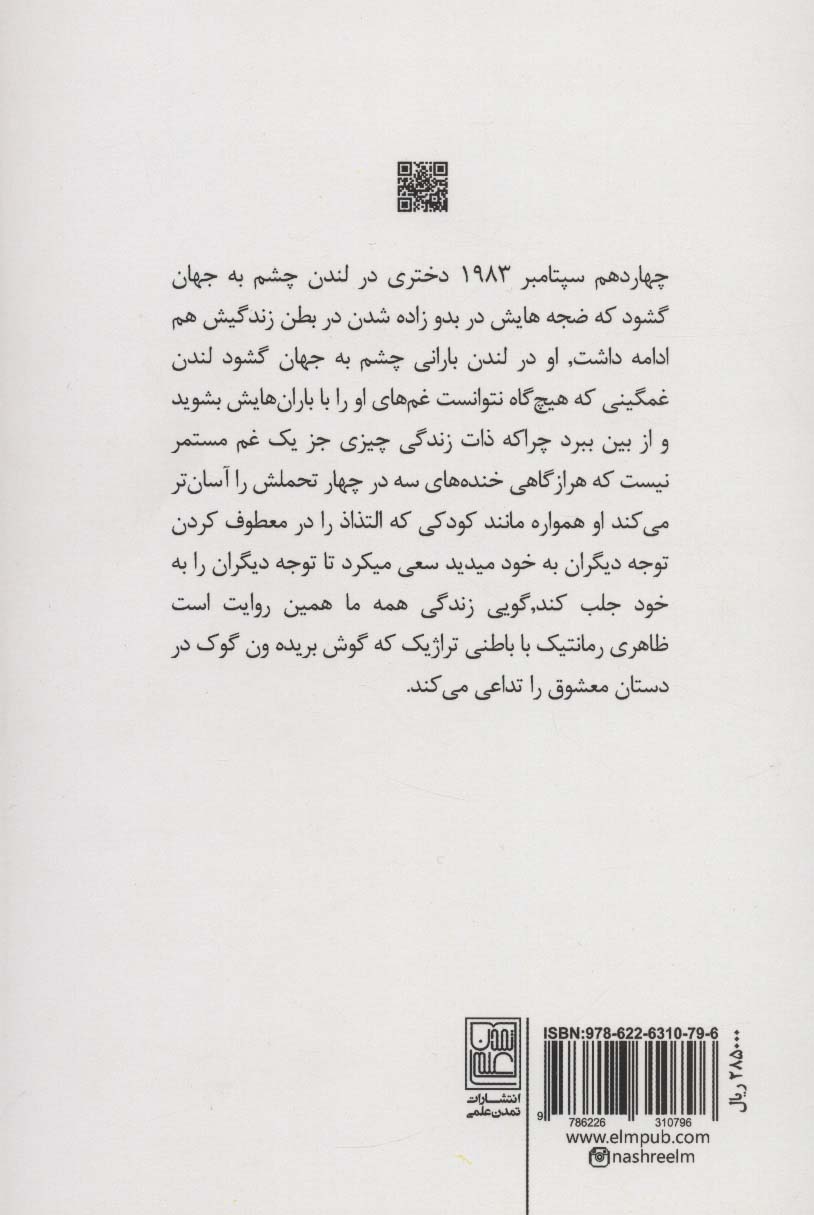 چهاردهم سپتامبر ۱۹۸۳ دختری در لندن چشم به جهان
گشود که ضجه هایش در بدو زاده شدن در بطن زندگیش هم
ادامه داشت, او در لندن بارانی چشم به جهان گشود لندن
غمگینی که هیچ‌گاه نتوانست غم‌های او را با باران‌هایش بشوید
و از بین ببرد چراکه ذات زندگی چیزی جز یک غم مستمر
نیست که هرازگاهی خنده‌های سه در چهار تحملش را آسان‌تر
می‌کند او همواره مانند کودکی که التذاذ را در معطوف کردن
توجه دیگران به خود میدید سعی میکرد تا توجه دیگران را به
خود جلب کند,گویی زندگی همه ما همین روایت است
ظاهری رمانتیک با باطنی تراژیک که گوش بریده ون گوک در
دستان معشوق را تداعی می‌کند.
تمدن علمی
انتشارات
تمدن‌علمی
ISBN:978-622-6310-79-6
9 786226 310796
www.elmpub.com
nashreelm
۲۸۵۰۰۰ ریال